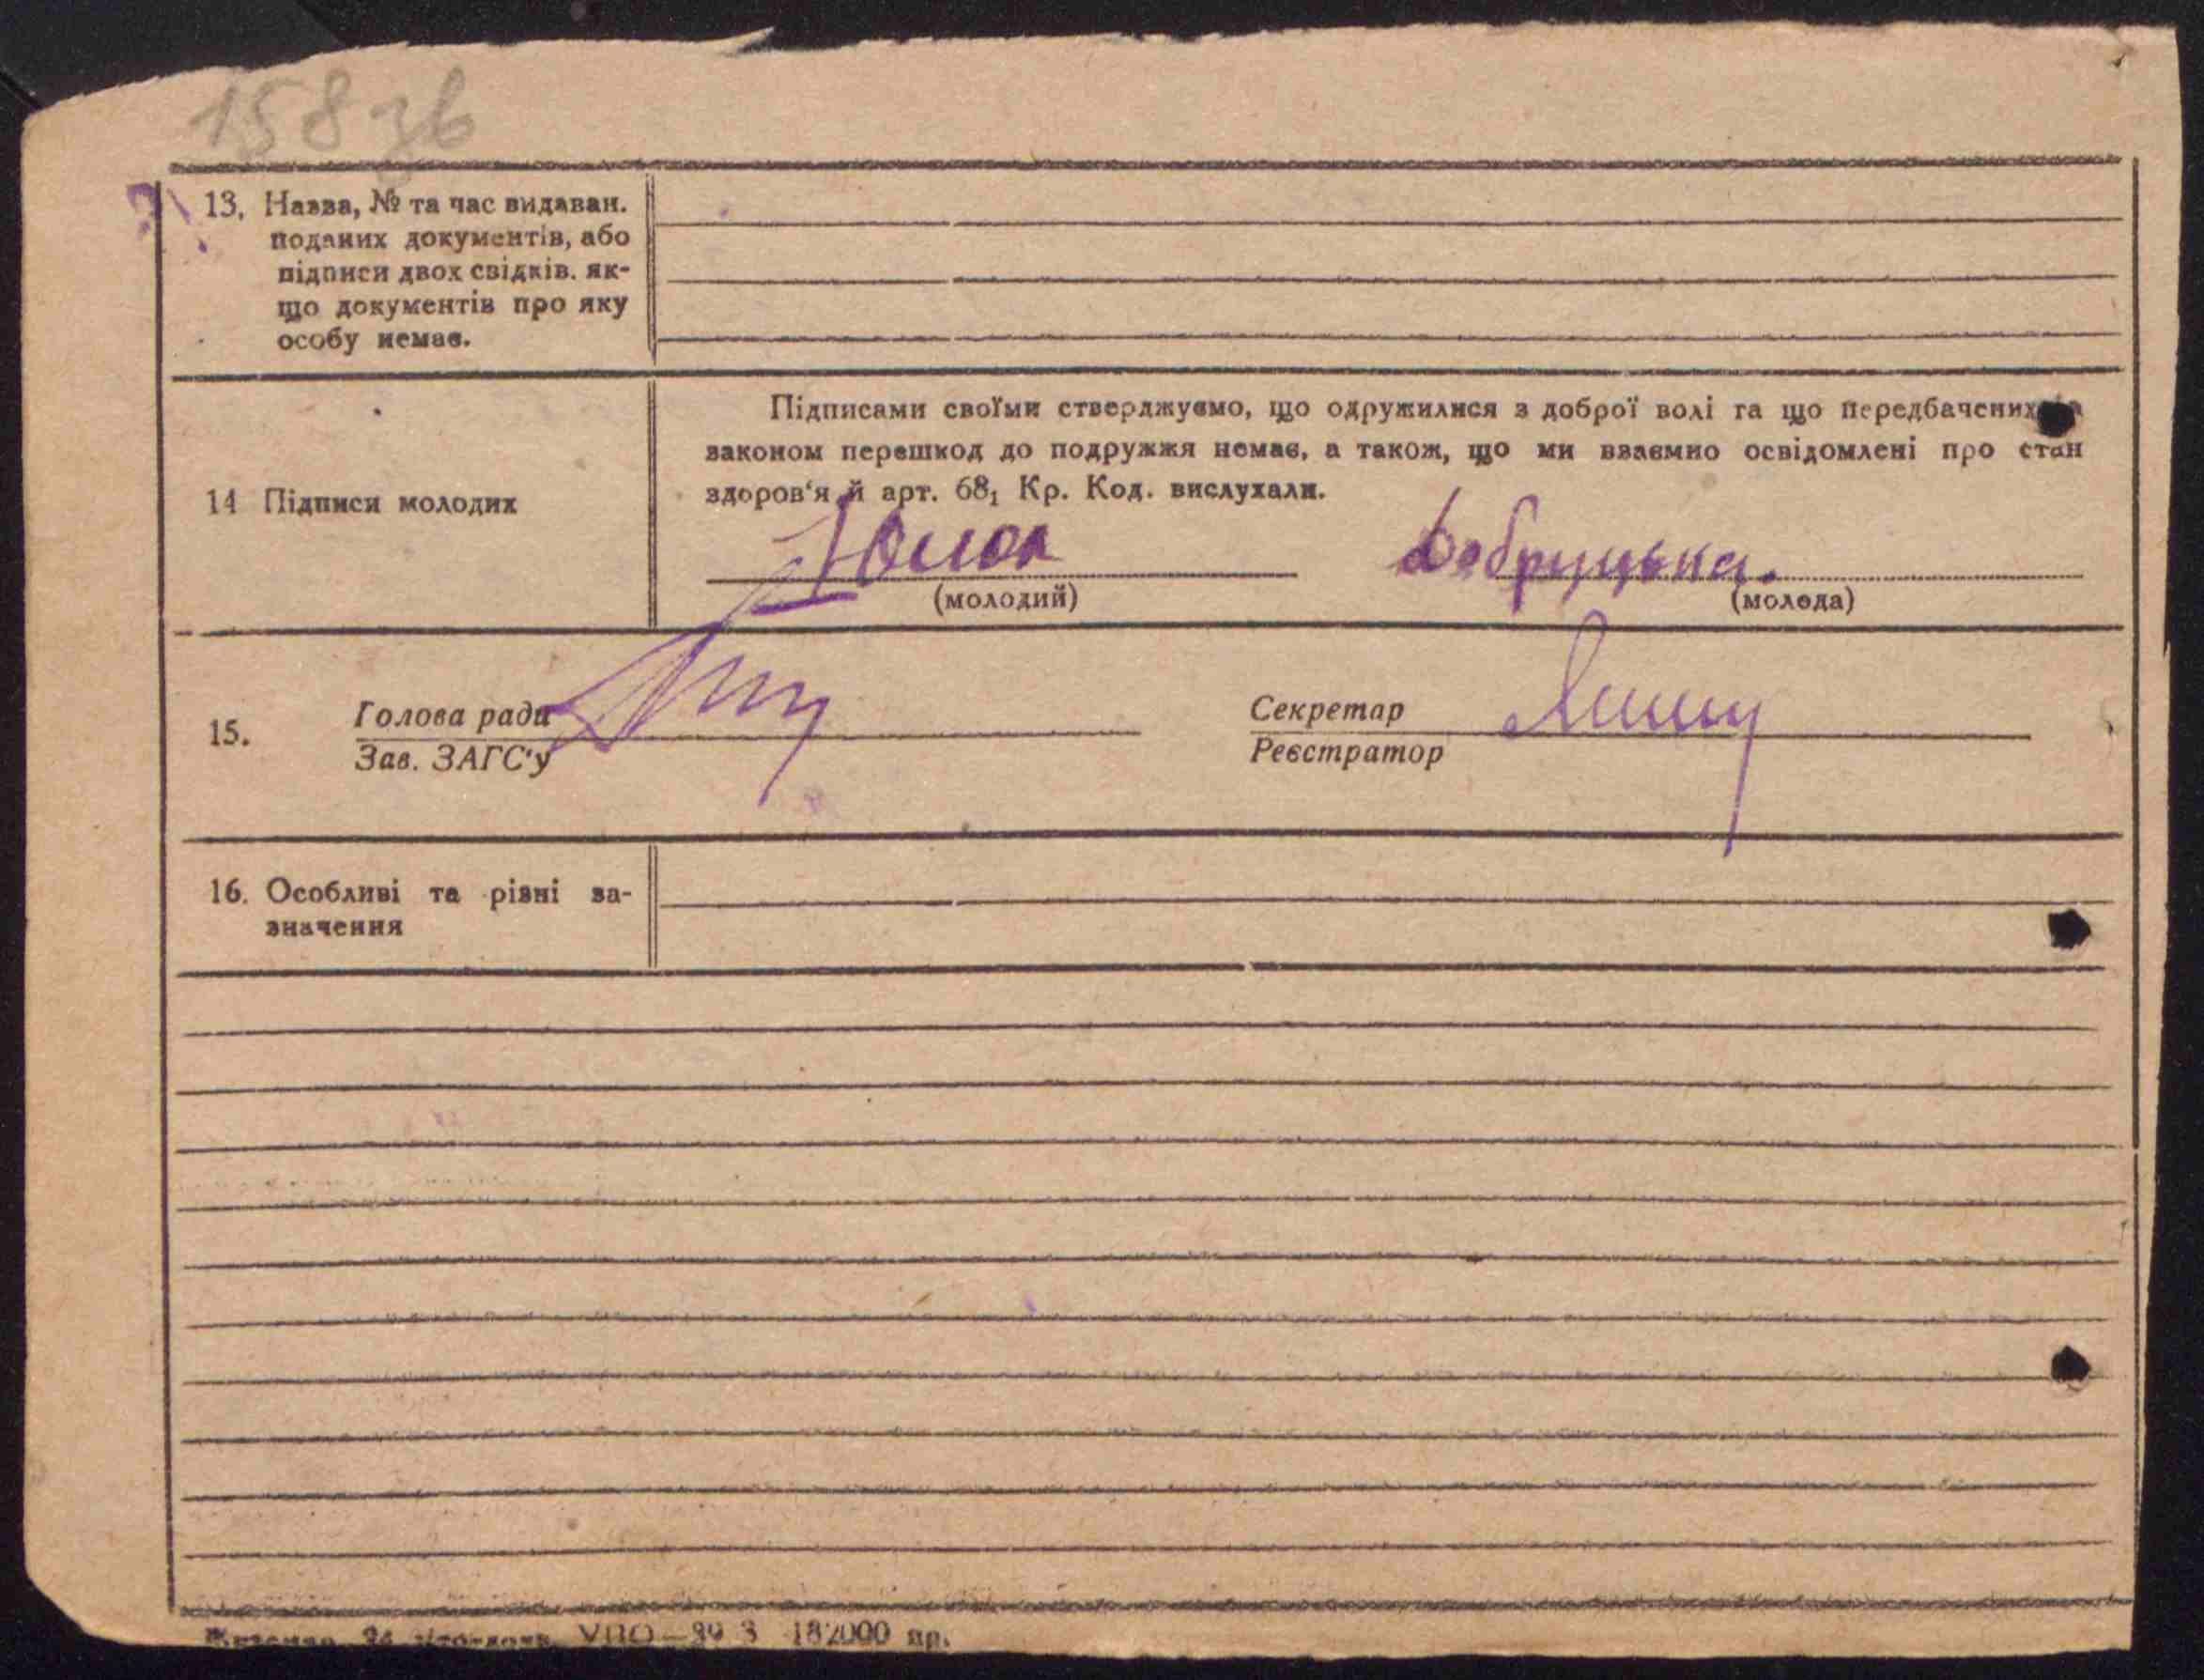 158 зв
13. Назва, № та час видаван.
поданих документів, або
підписи двох свідків. як-
що документів про яку
особу немає.
Підписами своїми стверджуємо, що одружилися з доброї волі та що передбачених
законом перешкод до подружжя немає, а також, що ми взаємно освідомлені про стан
здоров'я й арт. 68₁ Кр. Код. вислухали.
14 Підписи молодих
Добруцька.
(молодий) (молода)
15. Голова ради Секретар
Зав. ЗАГС'у Реєстратор
16. Особливі та різні за-
значення
УПО—99 З 182000 пр.